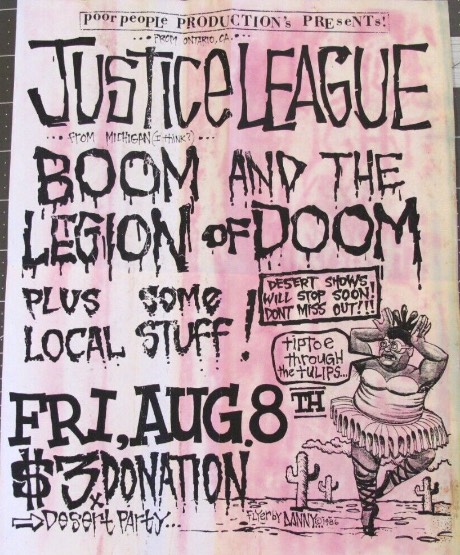 poor people PRODUCTION's PResENTs!
••• FROM ONTARIO, CA. •••
JUSTICE LEAGUE
••• FROM MICHIGAN (I THINK?) •••
BOOM AND THE
LEGION OF DOOM
PLUS SOME
LOCAL STUFF!
DESERT SHOWS
WILL STOP SOON!
DONT MISS OUT!!!
tiptoe
through
the tulips...
FRI, AUG. 8TH
$3 DONATION
⇨ Desert Party...
FLYER BY DANNY © 1986